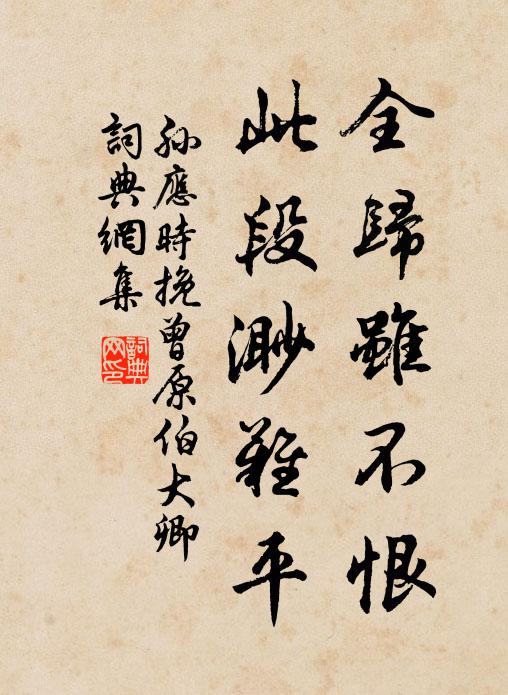 全歸雖不恨
此段渺難平
孫應時挽曾原伯大卿
詞典網集
詞典網印